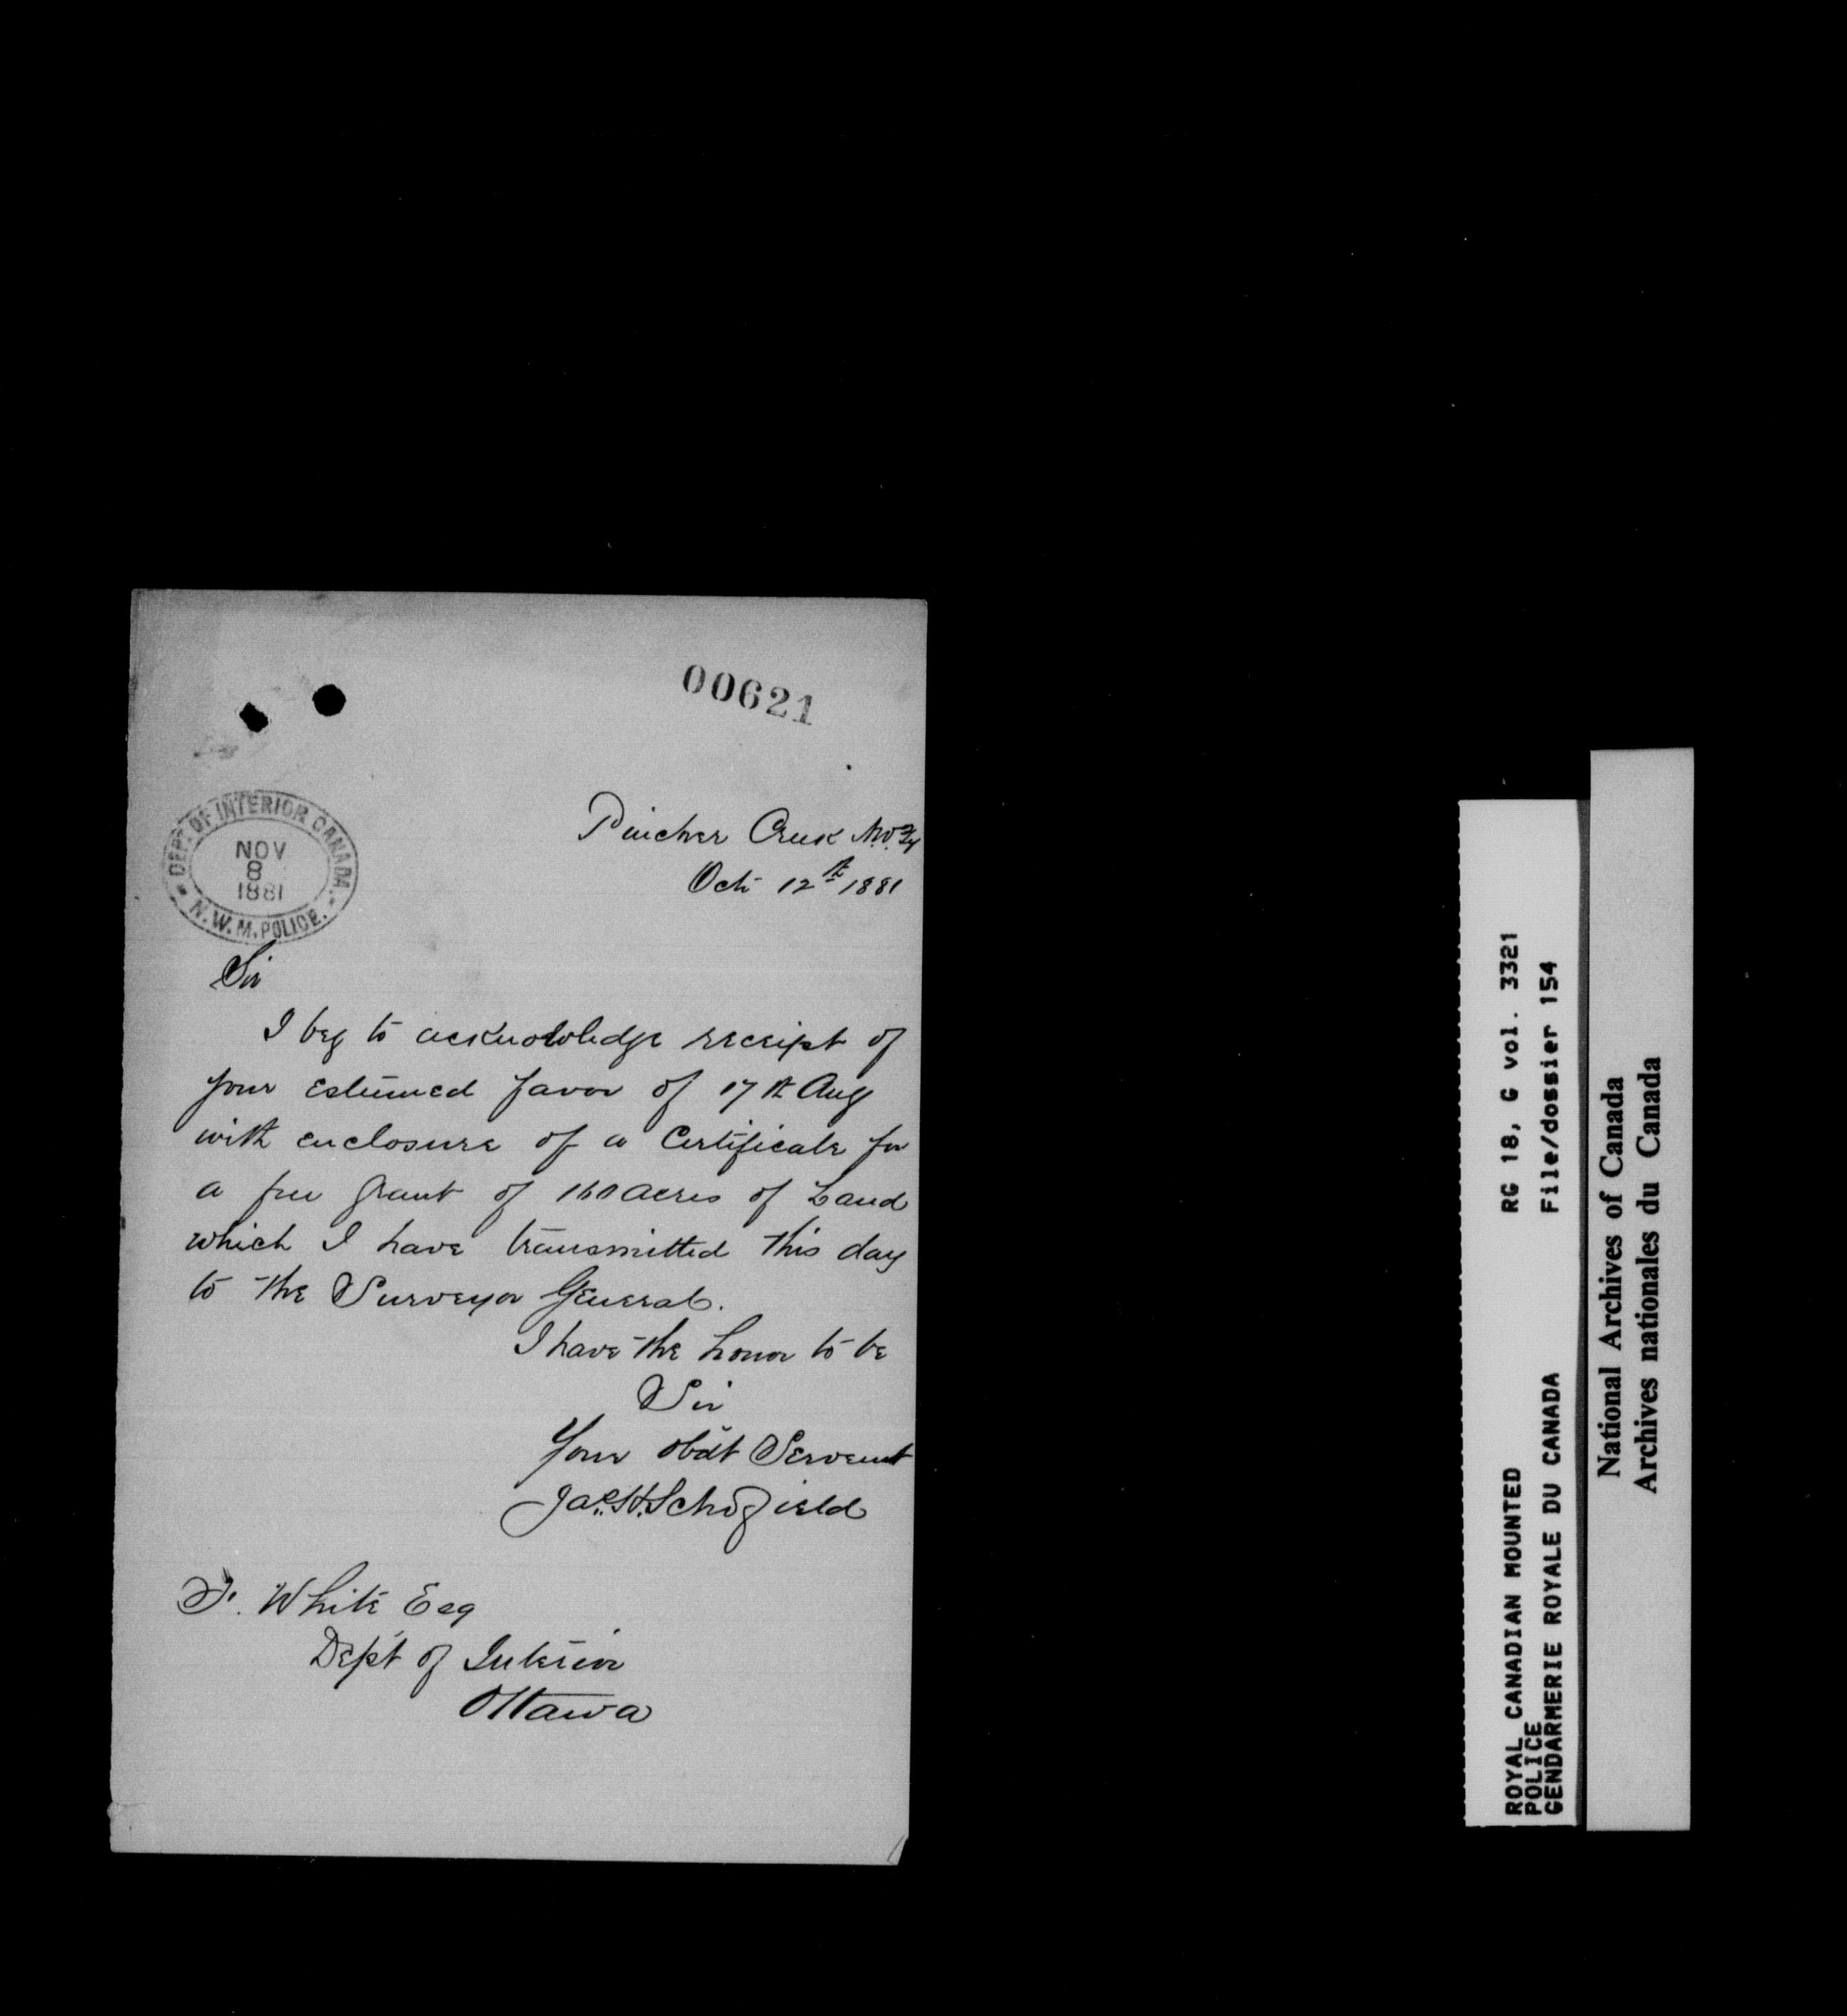 00621
DEPT. OF INTERIOR CANADA.
NOV
8
1881
N.W.M. POLICE.
Pincher Creek N.W.Ty
Oct 12th 1881
Sir
I beg to acknowledge receipt of
your esteemed favor of 17th Aug
with enclosure of a Certificate for
a free grant of 160 acres of Land
which I have transmitted this day
to the Surveyor General.
I have the honor to be
Sir
Your obdt Servant
Jas. H. Schofield
F. White Esq
Dept of Interior
Ottawa
ROYAL CANADIAN MOUNTED
POLICE
GENDARMERIE ROYALE DU CANADA
RG 18, G vol. 3321
File/dossier 154
National Archives of Canada
Archives nationales du Canada